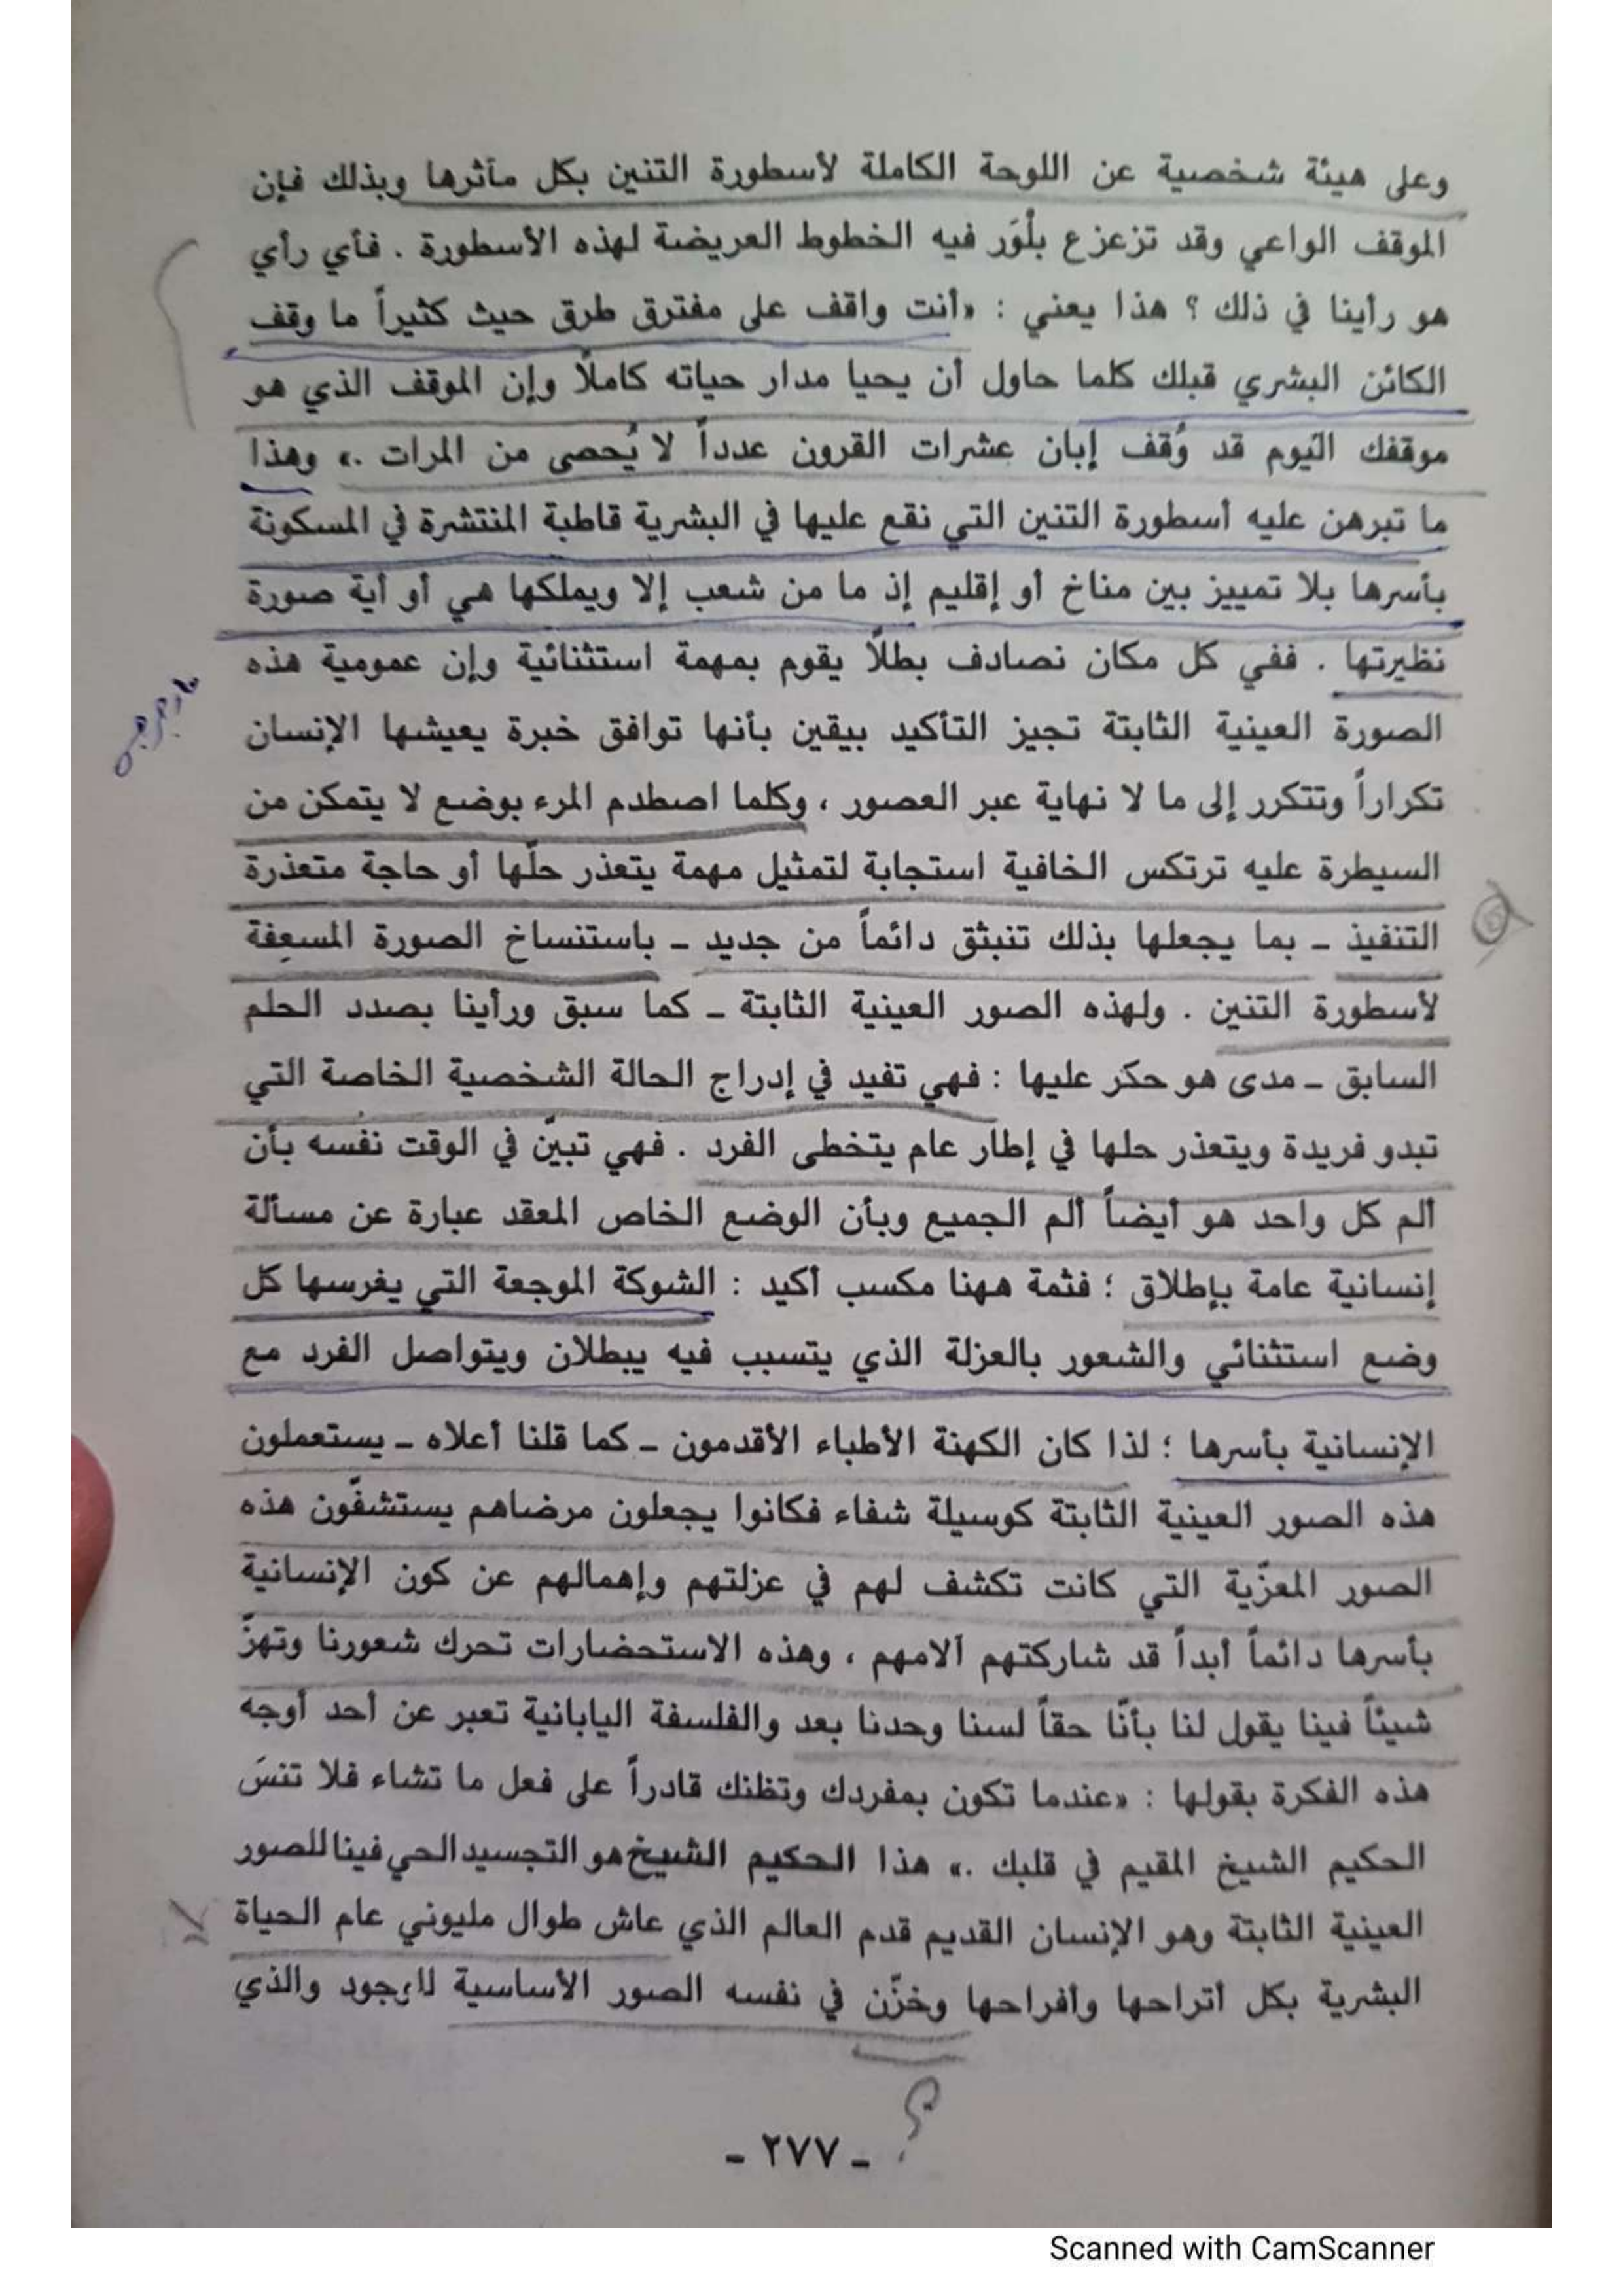 وعلى هيئة شخصية عن اللوحة الكاملة لأسطورة التنين بكل مآثرها وبذلك فإن
الموقف الواعي وقد تزعزع بلْوَر فيه الخطوط العريضة لهذه الأسطورة . فأي رأي
هو رأينا في ذلك ؟ هذا يعني : «أنت واقف على مفترق طرق حيث كثيراً ما وقف
الكائن البشري قبلك كلما حاول أن يحيا مدار حياته كاملاً وإن الموقف الذي هو
موقفك اليوم قد وُقف إبان عشرات القرون عدداً لا يُحصى من المرات .» وهذا
ما تبرهن عليه أسطورة التنين التي نقع عليها في البشرية قاطبة المنتشرة في المسكونة
بأسرها بلا تمييز بين مناخ أو إقليم إذ ما من شعب إلا ويملكها هي أو أية صورة
نظيرتها . ففي كل مكان نصادف بطلاً يقوم بمهمة استثنائية وإن عمومية هذه
الصورة العينية الثابتة تجيز التأكيد بيقين بأنها توافق خبرة يعيشها الإنسان
تكراراً وتتكرر إلى ما لا نهاية عبر العصور ، وكلما اصطدم المرء بوضع لا يتمكن من
السيطرة عليه ترتكس الخافية استجابة لتمثيل مهمة يتعذر حلّها أو حاجة متعذرة
التنفيذ ـ بما يجعلها بذلك تنبثق دائماً من جديد ـ باستنساخ الصورة المسعِفة
لأسطورة التنين . ولهذه الصور العينية الثابتة ـ كما سبق ورأينا بصدد الحلم
السابق ـ مدى هو حكر عليها : فهي تفيد في إدراج الحالة الشخصية الخاصة التي
تبدو فريدة ويتعذر حلها في إطار عام يتخطى الفرد . فهي تبيّن في الوقت نفسه بأن
ألم كل واحد هو أيضاً ألم الجميع وبأن الوضع الخاص المعقد عبارة عن مسألة
إنسانية عامة بإطلاق ؛ فثمة ههنا مكسب أكيد : الشوكة الموجعة التي يغرسها كل
وضع استثنائي والشعور بالعزلة الذي يتسبب فيه يبطلان ويتواصل الفرد مع
الإنسانية بأسرها ؛ لذا كان الكهنة الأطباء الأقدمون ـ كما قلنا أعلاه ـ يستعملون
هذه الصور العينية الثابتة كوسيلة شفاء فكانوا يجعلون مرضاهم يستشفّون هذه
الصور المعزّية التي كانت تكشف لهم في عزلتهم وإهمالهم عن كون الإنسانية
بأسرها دائماً أبداً قد شاركتهم آلامهم ، وهذه الاستحضارات تحرك شعورنا وتهزّ
شيئاً فينا يقول لنا بأنّا حقاً لسنا وحدنا بعد والفلسفة اليابانية تعبر عن أحد أوجه
هذه الفكرة بقولها : «عندما تكون بمفردك وتظنك قادراً على فعل ما تشاء فلا تنسَ
الحكيم الشيخ المقيم في قلبك .» هذا الحكيم الشيخ هو التجسيد الحي فينا للصور
العينية الثابتة وهو الإنسان القديم قدم العالم الذي عاش طوال مليوني عام الحياة
البشرية بكل أتراحها وأفراحها وخزّن في نفسه الصور الأساسية للوجود والذي
؟
ـ ٢٧٧ ـ
Scanned with CamScanner